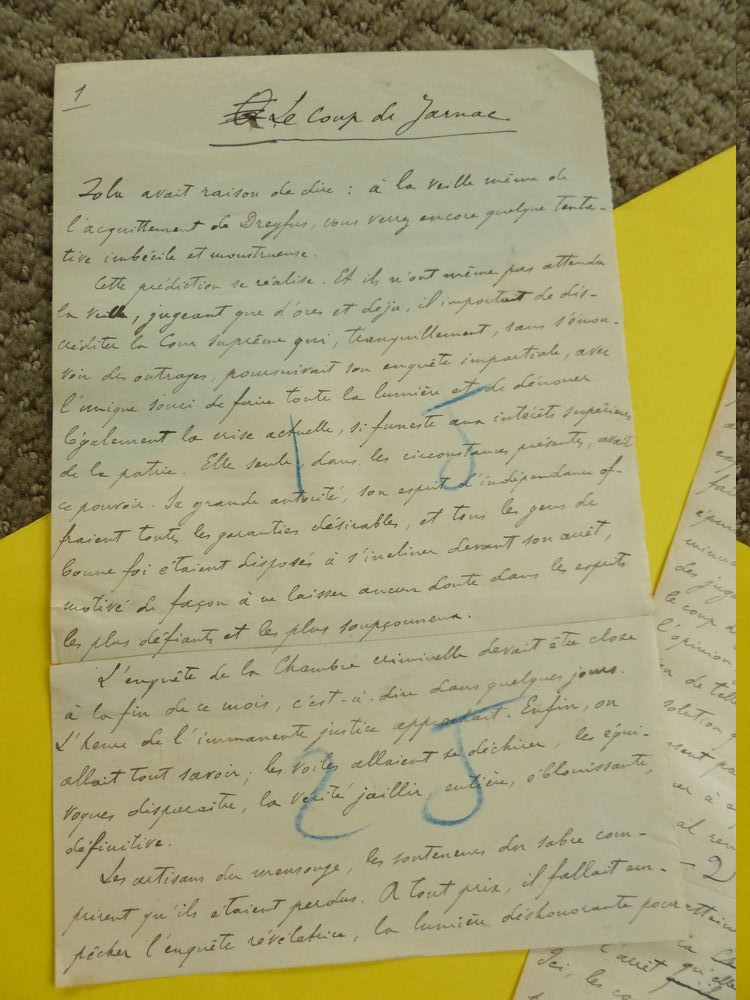 1
Le coup de Jarnac
Zola avait raison de dire : à la veille même de
l'acquittement de Dreyfus, vous verrez encore quelque tenta-
tive imbécile et monstrueuse.
Cette prédiction se réalise. Et ils n'ont même pas attendu
la veille, jugeant que d'ores et déjà, il importait de dis-
créditer la Cour suprême qui, tranquillement, sans s'émou-
voir des outrages, poursuivait son enquête impartiale, avec
l'unique souci de faire toute la lumière et de dénouer
légalement la crise actuelle, si funeste aux intérêts supérieurs
de la patrie. Elle seule, dans les circonstances présentes, avait
ce pouvoir. Sa grande autorité, son esprit d'indépendance of-
fraient toutes les garanties désirables, et tous les gens de
bonne foi étaient disposés à s'incliner devant son arrêt,
motivé de façon à ne laisser aucun doute dans les esprits
les plus défiants et les plus soupçonneux.
L'enquête de la Chambre criminelle devait être close
à la fin de ce mois, c'est-à-dire dans quelques jours.
L'heure de l'immanente justice approchait. Enfin, on
allait tout savoir ; les voiles allaient se déchirer, les équi-
voques disparaître, la vérité jaillir, entière, éblouissante,
définitive.
Les artisans du mensonge, les souteneurs du sabre com-
prirent qu'ils étaient perdus. A tout prix, il fallait em-
pêcher l'enquête révélatrice, la lumière déshonorante pour
1 J
2 J
des jug
le coup d
l'opinion
de telle
solution
- 2
l'arrêt
Ici, les